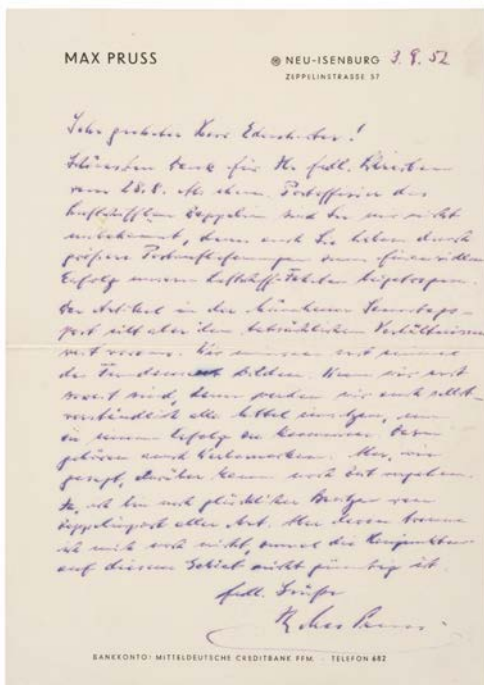 MAX PRUSS
NEU-ISENBURG 3.9.52
ZEPPELINSTRASSE 57
Sehr geehrter Herr
Schönsten Dank für Ihr frdl. Schreiben
vom 28.8. Als ehem. des
Luftschiffbau Zeppelin sind Sie mir nicht
unbekannt, denn auch Sie haben durch
größere zum finanziellen
Erfolg unserer Luftschiff-Fahrten beigetragen.
Der Artikel in der Münchener Sonntags-
post eilt aber den tatsächlichen Verhältnissen
weit voraus. Wir müssen erst einmal
das Fundament bilden. Wenn wir erst
soweit sind, dann werden wir auch selbst-
verständlich alle Mittel einsetzen, um
zu einem Erfolg zu kommen. Dazu
gehören auch Werbemarken. Aber, wie
gesagt, darüber kann noch Zeit vergehen.
Ja, ich bin noch glücklicher Besitzer von
Zeppelinpost aller Art. Aber davon trenne
ich mich noch nicht, zumal die Konjunktur
auf diesem Gebiet nicht günstig ist.
frdl. Grüße
Max Pruss
BANKKONTO: MITTELDEUTSCHE CREDITBANK FFM. - TELEFON 682